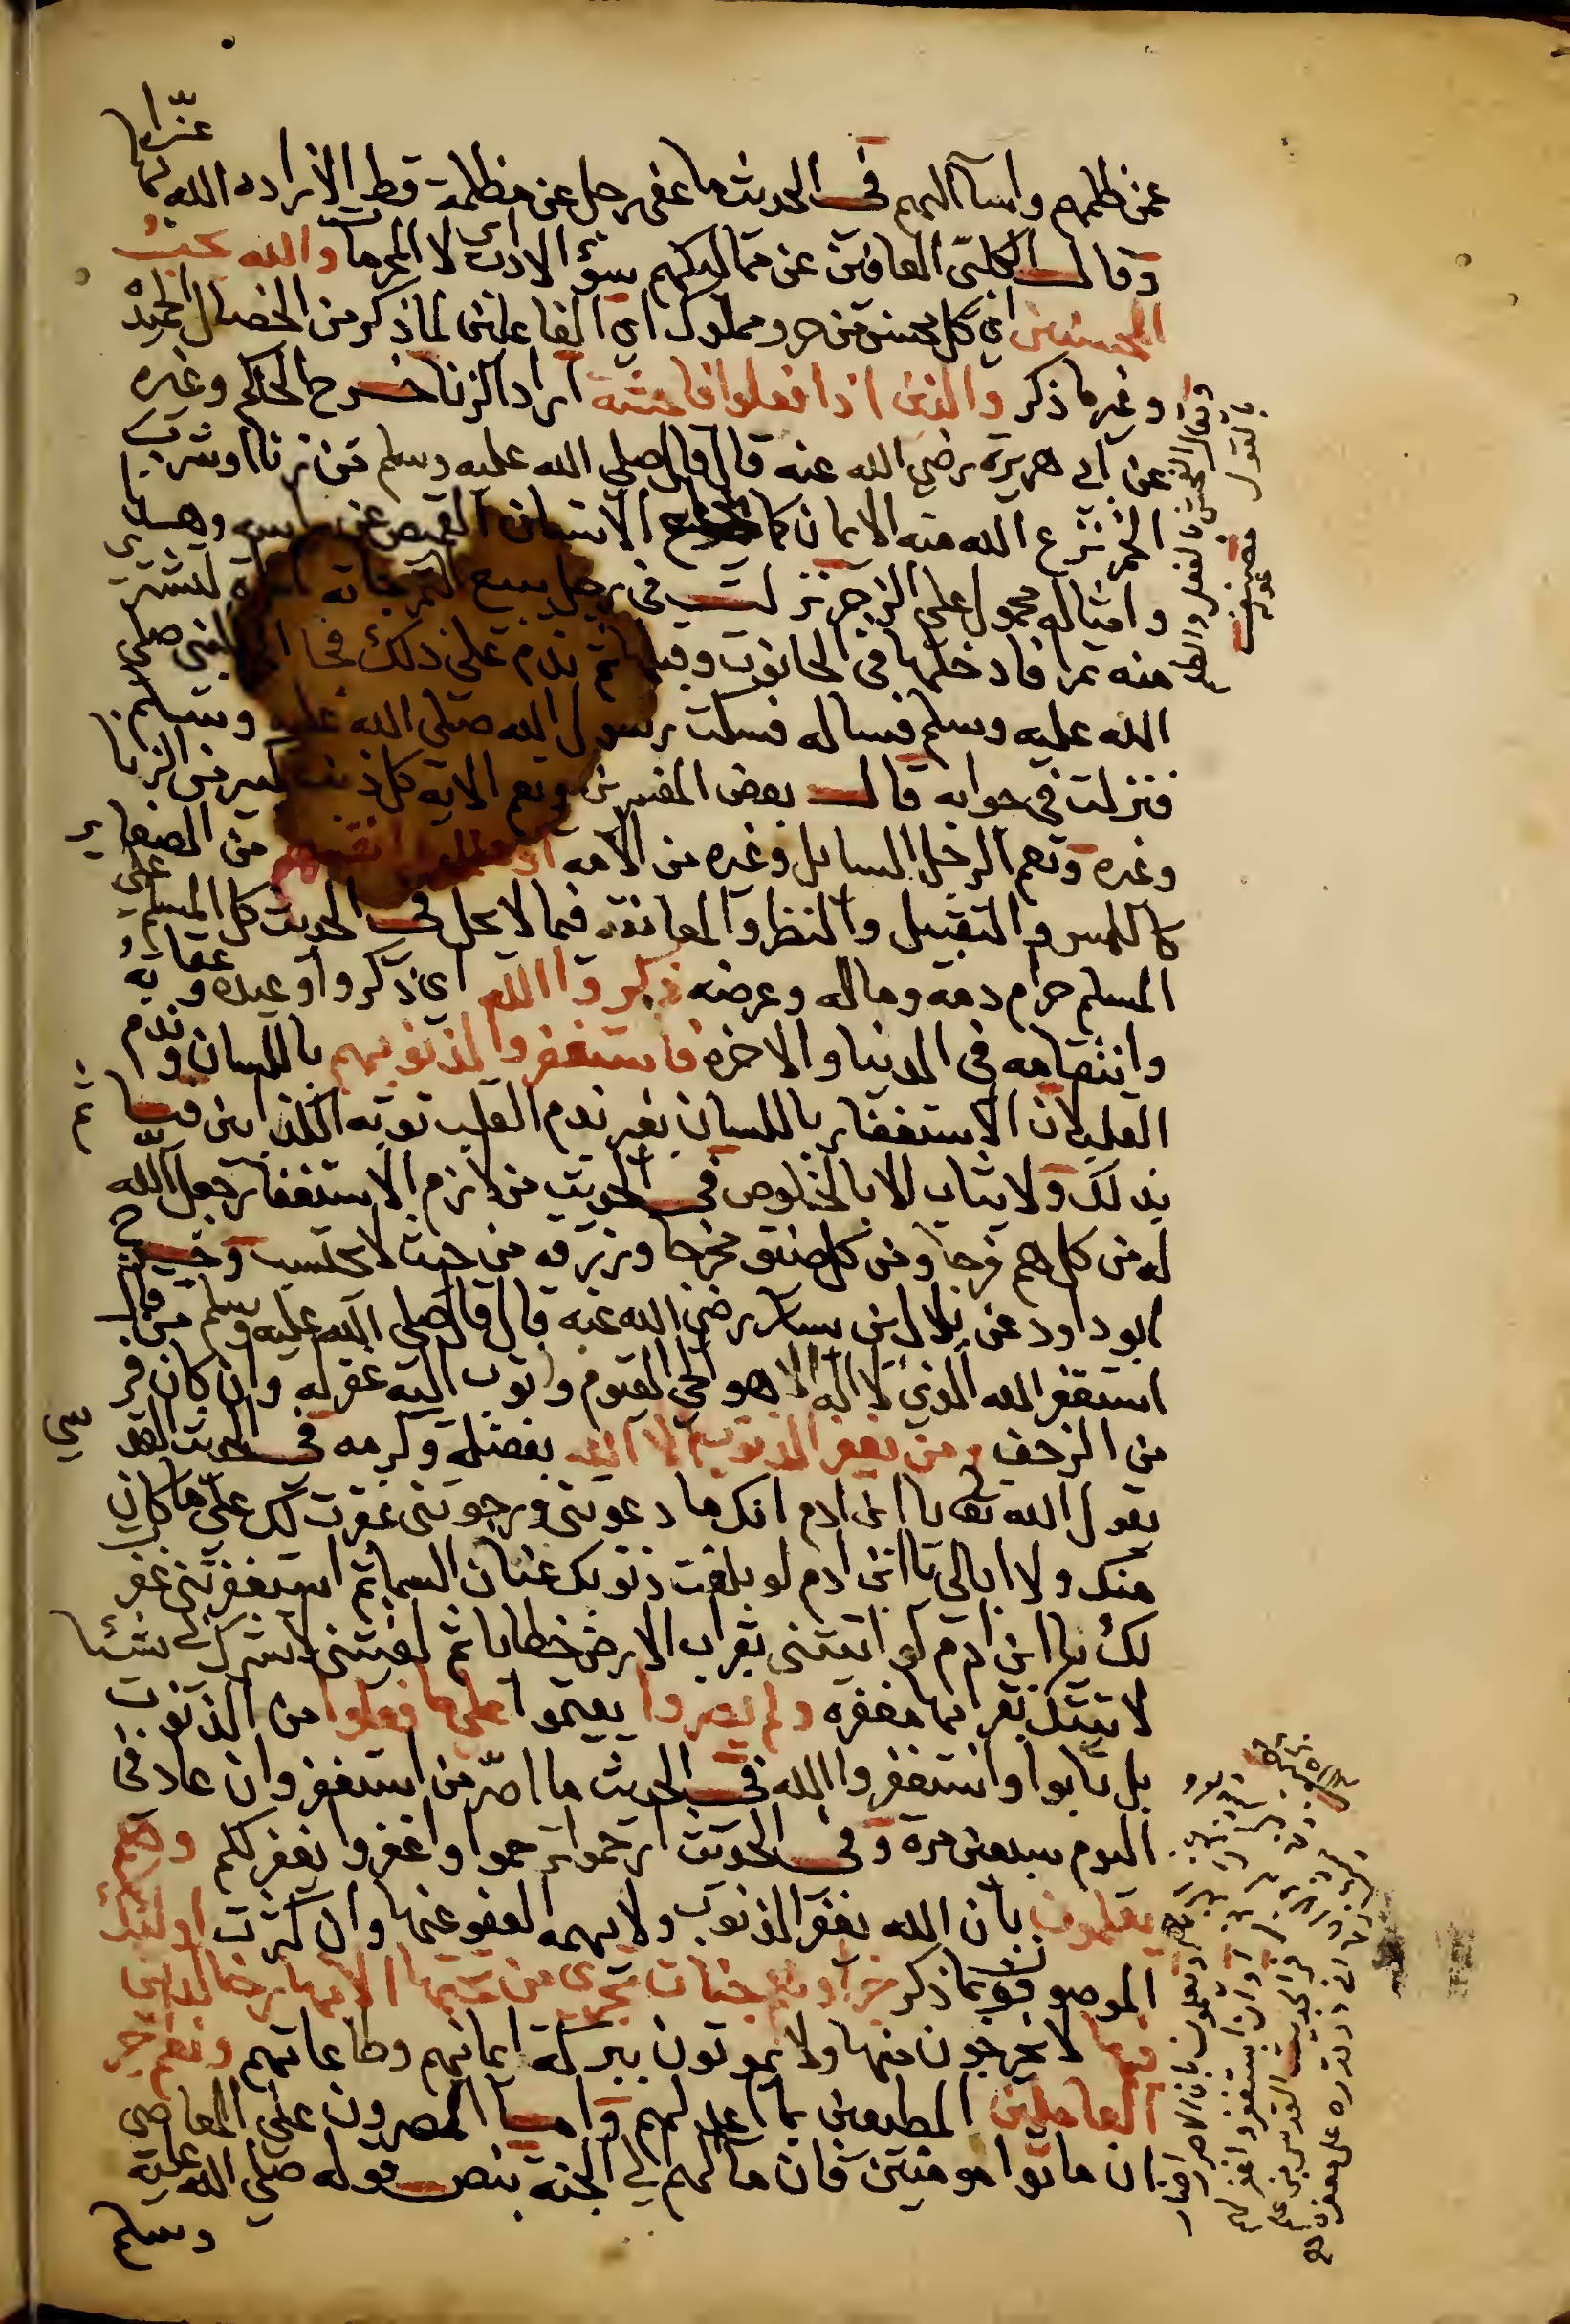 عمن ظلمهم واسآ اليهم في الحديث ما عفى رجل عن مظلمة قط الا زاده الله بها عزا
وقال الكلبي العافين عن مماليكهم بسؤ الادب اي لا المحرمات والله يحب
المحسنين اي كل محسن من حر ومملوك اي الفاعلين لما ذكر من الخصال الحميدة
وغير ما ذكر والذين اذا فعلوا فاحشة اراد الزنا خرج الحاكم وغيره
عن ابي هريرة رضي الله عنه قال قال صلى الله عليه وسلم من زنا او شرب
الخمر نزع الله منه الايمان كما يخلع الانسان القميص عن راسه وهذا
وامثاله محمول على الزجر نزلت في رجل يبيع التمر جاته امراة لتشتري
منه تمرا فادخلها في الحانوت وقبلها ثم ندم على ذلك فجا الى النبي صلى
الله عليه وسلم فساله فسكت رسول الله صلى الله عليه وسلم
فنزلت في جوابه قال بعض المفسرين وتعم الاية كل ذنب كبير من الزنا
وغيره وتعم الرجل السايل وغيره من الامة او ظلموا انفسهم من الصغاير
كاللمس والتقبيل والنظر والمعانقة فيما لا يحل في الحديث كل المسلم على
المسلم حرام دمه وماله وعرضه ذكروا الله اي ذكروا وعيده وعقابه
وانتقامه في الدنيا والاخرة فاستغفروا لذنوبهم باللسان وندم
القلب لان الاستغفار باللسان بغير ندم القلب توبة الكذابين فياثم
بذلك ولا يثاب الا بالخلوص في الحديث من لازم الاستغفار جعل الله
له من كل هم فرجا ومن كل ضيق مخرجا ورزقه من حيث لا يحتسب وخرج
ابو داود عن بلال بن يسار رضي الله عنه قال قال صلى الله عليه وسلم من قال
استغفر الله الذي لا اله الا هو الحي القيوم واتوب اليه غفر له وان كان فر
من الزحف ومن يغفر الذنوب الا الله بفضله وكرمه في الحديث القدسي
يقول الله تعالى يا ابن ادم انك ما دعوتني ورجوتني غفرت لك على ما كان
منك ولا ابالي يا ابن ادم لو بلغت ذنوبك عنان السما ثم استغفرتني غفر
لك يا ابن ادم لو اتيتني بقراب الارض خطايا ثم لقيتني لا تشرك بي شيئا
لاتيتك بقرابها مغفرة ولم يصروا يقيموا على ما فعلوا من الذنوب
بل تابوا واستغفروا الله في الحديث ما اصر من استغفر وان عاد في
اليوم سبعين مرة وفي الحديث ارحموا ترحموا واغفروا يغفر لكم وهم
يعلمون بان الله يغفر الذنوب ولا يهمه العفو عنها وان كثرت اولئك
الموصوفون بما ذكر جزآوهم جنات تجري من تحتها الانهار خالدين
فيها لا يخرجون منها ولا يموتون ببركة ايمانهم وطاعاتهم ونعم اجر
العاملين المطيعين بما اعد لهم واما المصرون على المعاصي
ان ماتوا مومنين فان مآلهم الى الجنة بنص قوله صلى الله عليه
وسلم